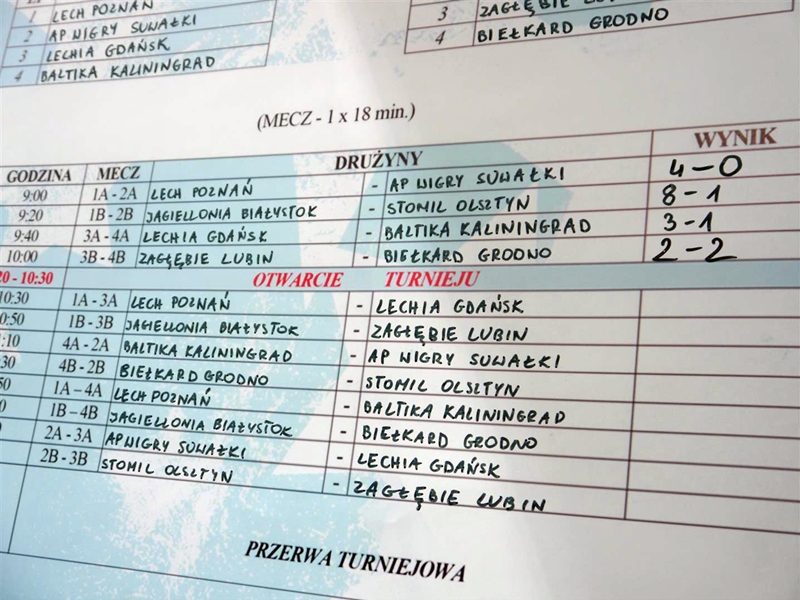 1 LECH POZNAŃ
2 AP WIGRY SUWAŁKI
3 LECHIA GDAŃSK
4 BAŁTIKA KALININGRAD
3 ZAGŁĘBIE LUBIN
4 BIEŁKARD GRODNO
(MECZ - 1 x 18 min.)
GODZINA MECZ DRUŻYNY WYNIK
9:00 1A - 2A LECH POZNAŃ - AP WIGRY SUWAŁKI 4-0
9:20 1B - 2B JAGIELLONIA BIAŁYSTOK - STOMIL OLSZTYN 8-1
9:40 3A - 4A LECHIA GDAŃSK - BAŁTIKA KALININGRAD 3-1
10:00 3B - 4B ZAGŁĘBIE LUBIN - BIEŁKARD GRODNO 2-2
20 - 10:30 OTWARCIE TURNIEJU
10:30 1A - 3A LECH POZNAŃ - LECHIA GDAŃSK
:50 1B - 3B JAGIELLONIA BIAŁYSTOK - ZAGŁĘBIE LUBIN
:10 4A - 2A BAŁTIKA KALININGRAD - AP WIGRY SUWAŁKI
30 4B - 2B BIEŁKARD GRODNO - STOMIL OLSZTYN
50 1A - 4A LECH POZNAŃ - BAŁTIKA KALININGRAD
0 1B - 4B JAGIELLONIA BIAŁYSTOK - BIEŁKARD GRODNO
2A - 3A AP WIGRY SUWAŁKI - LECHIA GDAŃSK
2B - 3B STOMIL OLSZTYN - ZAGŁĘBIE LUBIN
PRZERWA TURNIEJOWA